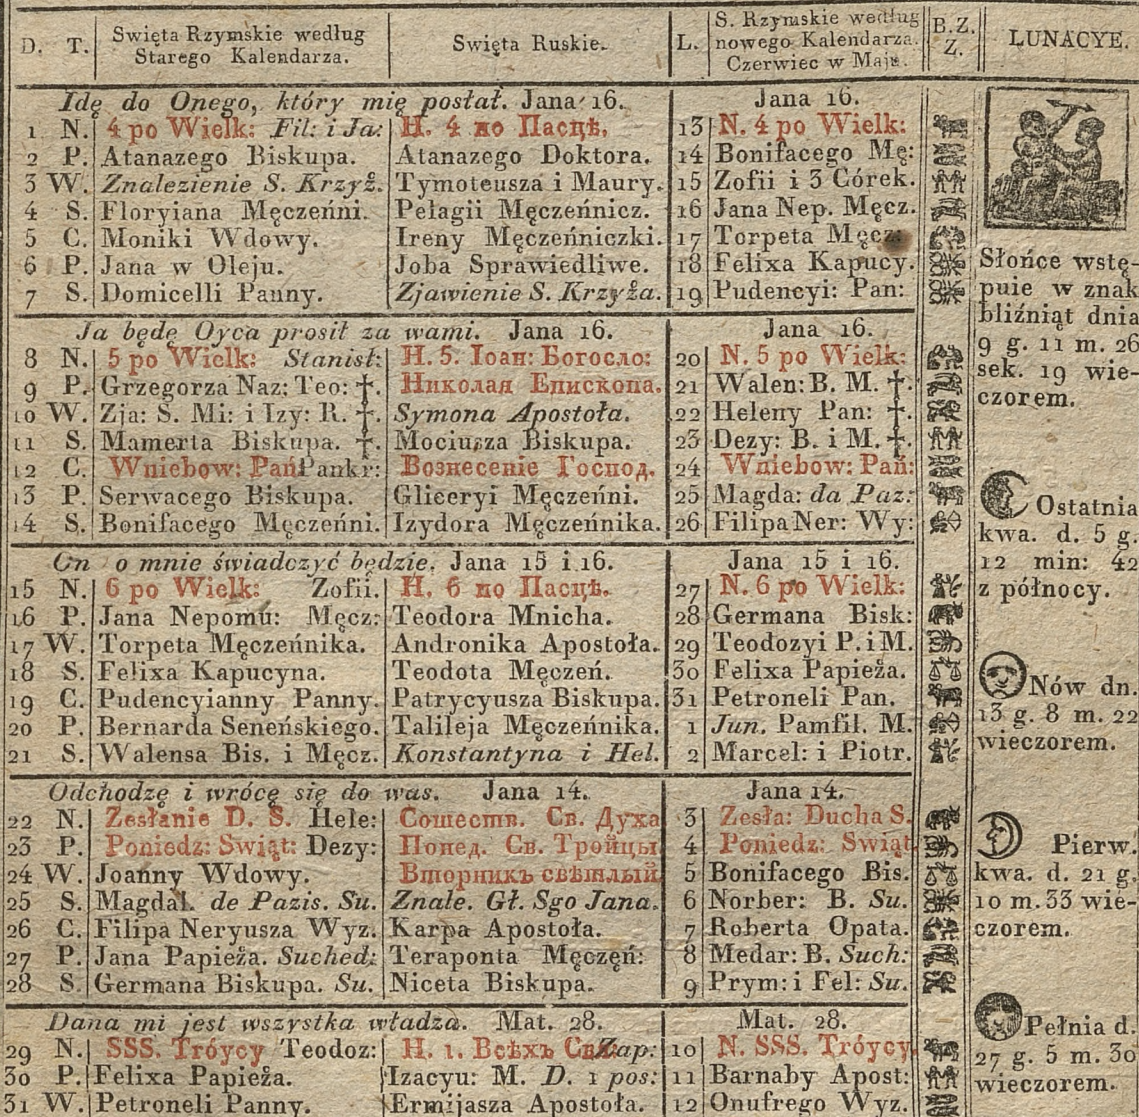 D. T. Swięta Rzymskie według Starego Kalendarza. Swięta Ruskie. L. S. Rzymskie według nowego Kalendarza. Czerwiec w Maju. B.Z. Z. LUNACYE.
Idę do Onego, który mię posłał. Jana 16. Jana 16.
1 N. 4 po Wielk: Fil: i Ja: Н. 4 по Пасцѣ. 13 N. 4 po Wielk:
2 P. Atanazego Biskupa. Atanazego Doktora. 14 Bonifacego Mę:
3 W. Znalezienie S. Krzyż. Tymoteusza i Maury. 15 Zofii i 3 Córek.
4 S. Floryiana Męczeńni. Pełagii Męczeńnicz. 16 Jana Nep. Męcz.
5 C. Moniki Wdowy. Ireny Męczeńniczki. 17 Torpeta Męcz.
6 P. Jana w Oleju. Joba Sprawiedliwe. 18 Felixa Kapucy.
7 S. Domicelli Panny. Zjawienie S. Krzyża. 19 Pudencyi: Pan:
Ja będę Oyca prosił za wami. Jana 16. Jana 16.
8 N. 5 po Wielk: Stanisł: Н. 5. Іоан: Богосло: 20 N. 5 po Wielk:
9 P. Grzegorza Naz: Teo: †. Николая Епископа. 21 Walen: B. M. †.
10 W. Zja: S. Mi: i Izy: R. †. Symona Apostoła. 22 Heleny Pan: †.
11 S. Mamerta Biskupa. †. Mociusza Biskupa. 23 Dezy: B. i M. †.
12 C. Wniebow: Pań Pankr: Вознесеніе Господ. 24 Wniebow: Pań:
13 P. Serwacego Biskupa. Gliceryi Męczeńni. 25 Magda: da Paz:
14 S. Bonifacego Męczeńni. Izydora Męczeńnika. 26 Filipa Ner: Wy:
Gn o mnie świadczyć będzie. Jana 15 i 16. Jana 15 i 16.
15 N. 6 po Wielk: Zofii. Н. 6 по Пасцѣ. 27 N. 6 po Wielk:
16 P. Jana Nepomu: Męcz: Teodora Mnicha. 28 Germana Bisk:
17 W. Torpeta Męczeńnika. Andronika Apostoła. 29 Teodozyi P. i M.
18 S. Felixa Kapucyna. Teodota Męczeń. 30 Felixa Papieża.
19 C. Pudencyianny Panny. Patrycyusza Biskupa. 31 Petroneli Pan.
20 P. Bernarda Seneńskiego. Talileja Męczeńnika. 1 Jun. Pamfil. M.
21 S. Walensa Bis. i Męcz. Konstantyna i Hel. 2 Marcel: i Piotr.
Odchodzę i wrócę się do was. Jana 14. Jana 14.
22 N. Zesłanie D. S. Hele: Сошеств. Св. Духа 3 Zesła: Ducha S.
23 P. Poniedz: Swiąt: Dezy: Понед. Св. Тройцы 4 Poniedz: Swiąt
24 W. Joanny Wdowy. Вторникъ свѣтлый 5 Bonifacego Bis.
25 S. Magdal. de Pazis. Su. Znale. Gł. Sgo Jana. 6 Norber: B. Su.
26 C. Filipa Neryusza Wyz. Karpa Apostoła. 7 Roberta Opata.
27 P. Jana Papieża. Suched: Teraponta Męczęń: 8 Medar: B. Such:
28 S. Germana Biskupa. Su. Niceta Biskupa. 9 Prym: i Fel: Su.
Dana mi jest wszystka władza. Mat. 28. Mat. 28.
29 N. SSS. Tróycy Teodoz: Н. 1. Всѣхъ Zap: 10 N. SSS. Tróycy.
30 P. Felixa Papieża. Izacyu: M. D. 1 pos: 11 Barnaby Apost:
31 W. Petroneli Panny. Ermijasza Apostoła. 12 Onufrego Wyz.
Słońce wstę-
puie w znak
bliźniąt dnia
9 g. 11 m. 26
sek. 19 wie-
czorem.
Ostatnia
kwa. d. 5 g.
12 min: 42
z północy.
Nów dn.
13 g. 8 m. 22
wieczorem.
Pierw.
kwa. d. 21 g.
10 m. 33 wie-
czorem.
Pełnia d.
27 g. 5 m. 30
wieczorem.